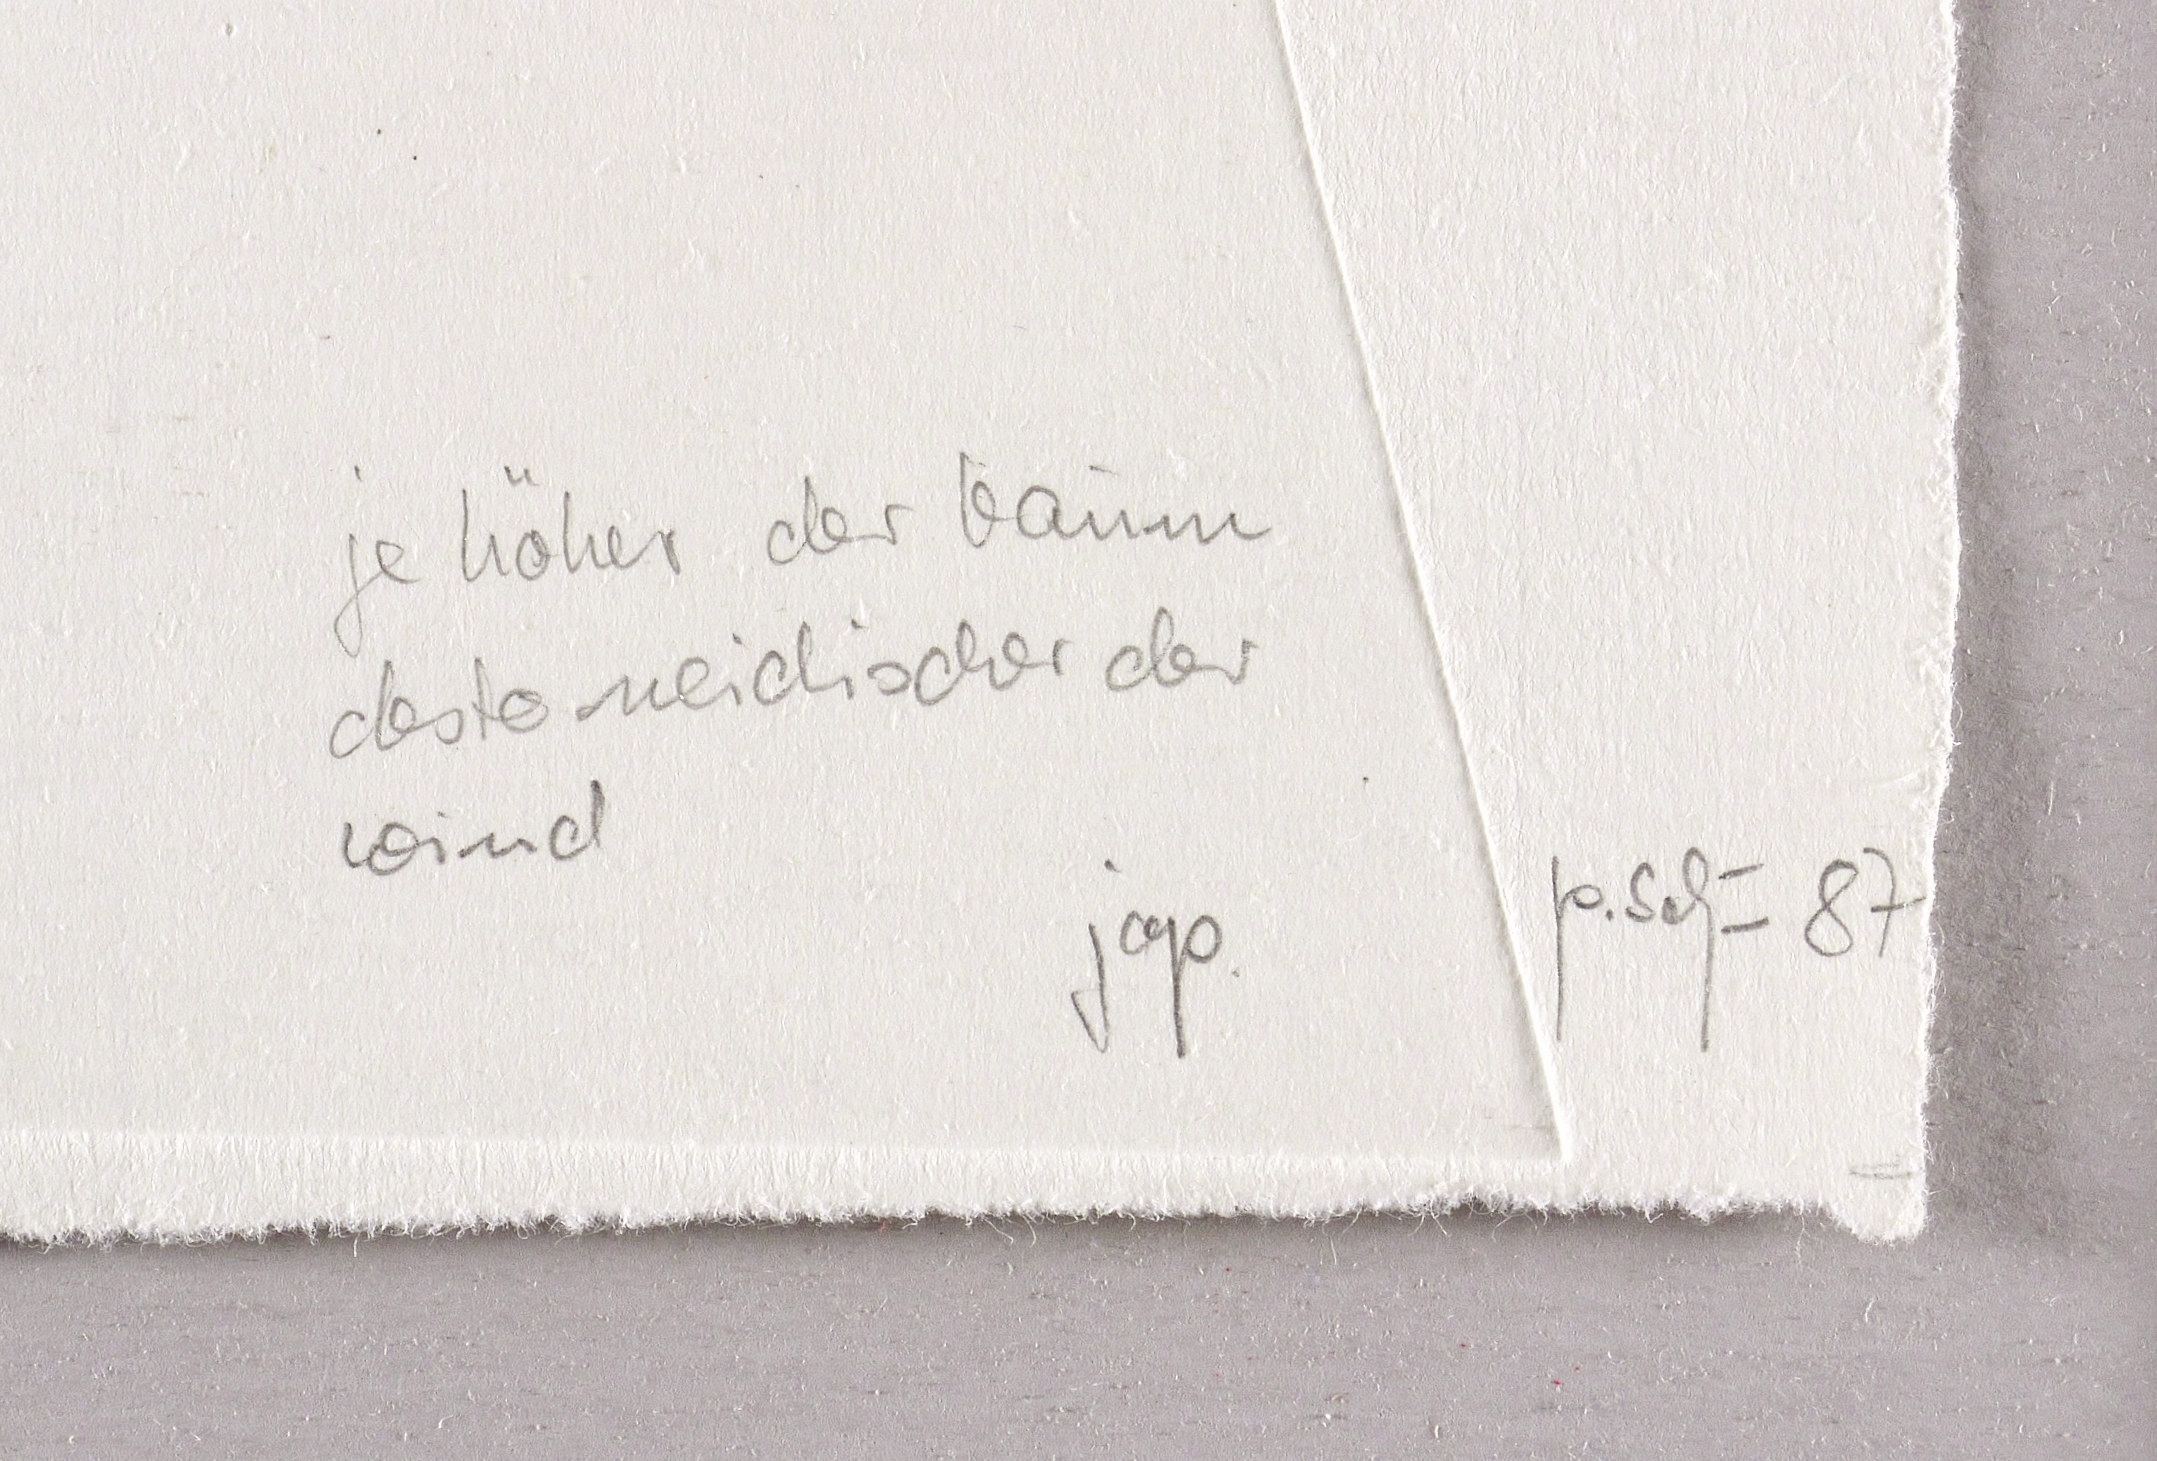 je höher der baum
desto neidischer der
wind
jap.
p.sch= 87